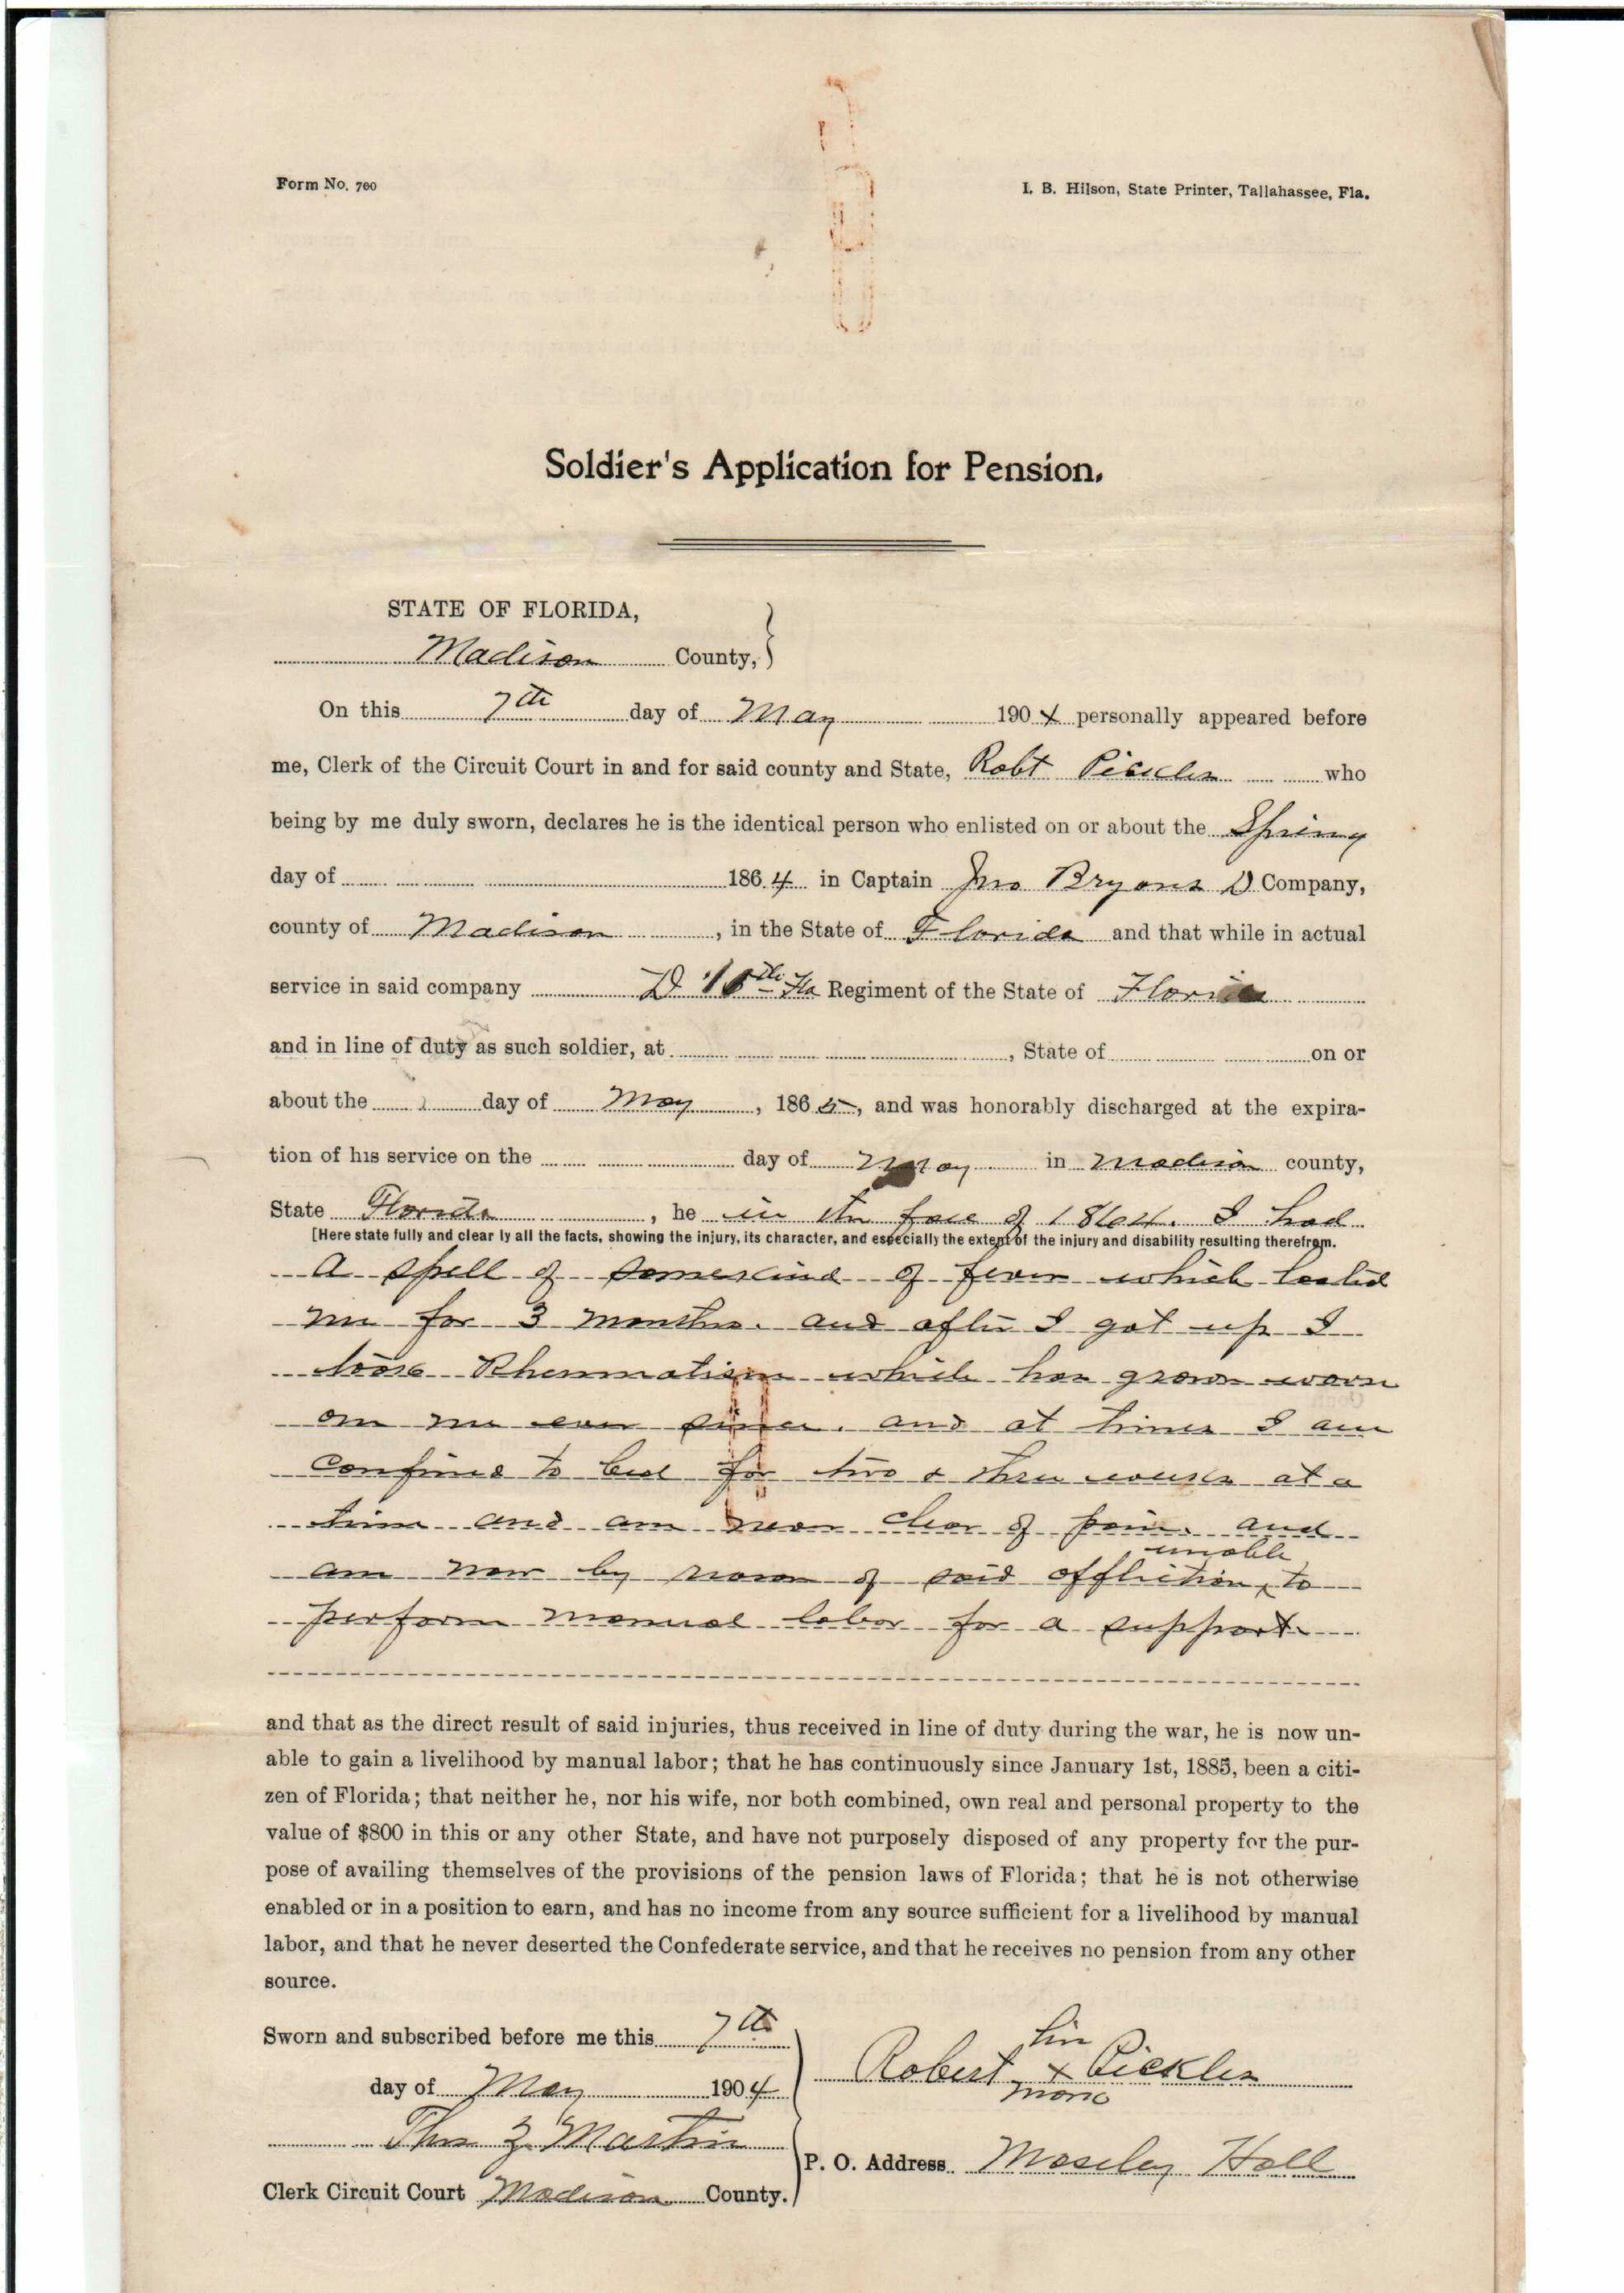 Form No. 760
I. B. Hilson, State Printer, Tallahassee, Fla.
Soldier's Application for Pension.
STATE OF FLORIDA,
Madison County,
On this 7th day of May 1904 personally appeared before
me, Clerk of the Circuit Court in and for said county and State, Robt Pickles who
being by me duly sworn, declares he is the identical person who enlisted on or about the Spring
day of 1864 in Captain Jno Bryans D Company,
county of Madison, in the State of Florida and that while in actual
service in said company D Fla Regiment of the State of Florida
and in line of duty as such soldier, at , State of on or
about the day of May, 1865, and was honorably discharged at the expira-
tion of his service on the day of May in Madison county,
State Florida, he in the face of 1864. I had
[Here state fully and clear ly all the facts, showing the injury, its character, and especially the extent of the injury and disability resulting therefrom.
a spell of some kind of fever which lasted
me for 3 months. and after I got up I
took Rheumatism which has grown worse
on me ever since. and at times I am
confined to bed for two & three weeks at a
time and am never clear of pain. and
am now by reason of said affliction unable to
perform manual labor for a support
and that as the direct result of said injuries, thus received in line of duty during the war, he is now un-
able to gain a livelihood by manual labor; that he has continuously since January 1st, 1885, been a citi-
zen of Florida; that neither he, nor his wife, nor both combined, own real and personal property to the
value of $800 in this or any other State, and have not purposely disposed of any property for the pur-
pose of availing themselves of the provisions of the pension laws of Florida; that he is not otherwise
enabled or in a position to earn, and has no income from any source sufficient for a livelihood by manual
labor, and that he never deserted the Confederate service, and that he receives no pension from any other
source.
Sworn and subscribed before me this 7th
day of May 1904
Thos Z Martin
Clerk Circuit Court Madison County.
his
Robert x Pickles
mark
P. O. Address Moseley Hall